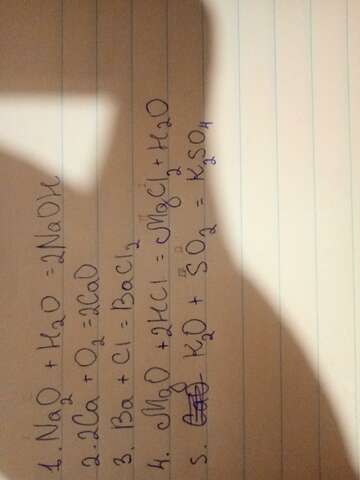 1. Na₂O + H₂O = 2NaOH
2. 2Ca + O₂ = 2CaO
3. Ba + Cl = BaCl₂
4. MgO + 2HCl = MgCl₂ + H₂O
5. K₂O + SO₂ = K₂SO₄